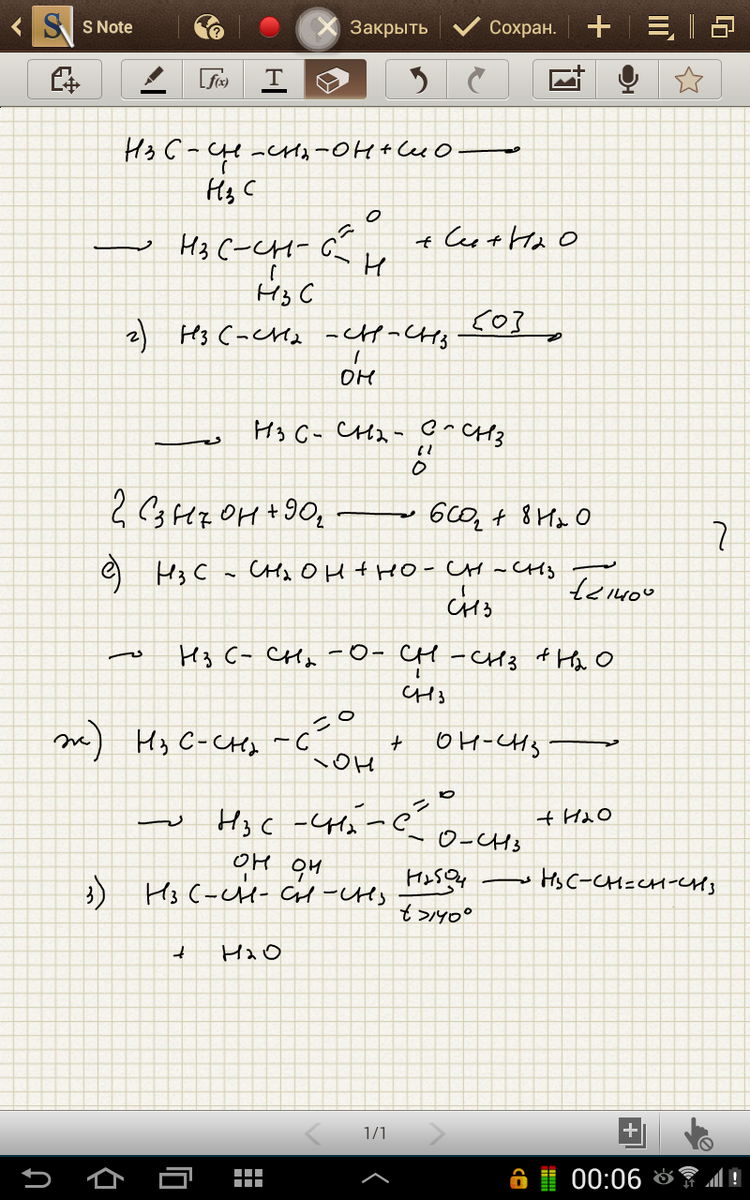 S Note Закрыть Сохран.
f(x) T
H3C-CH-CH2-OH+CuO→
H3C
→ H3C-CH-C=O + Cu+H2O
H
H3C
г) H3C-CH2-CH-CH3 [O]→
OH
→ H3C-CH2-C-CH3
O
2C3H7OH+9O2→6CO2+8H2O
?
е) H3C-CH2OH+HO-CH-CH3→
CH3 t<140°
→ H3C-CH2-O-CH-CH3+H2O
CH3
ж) H3C-CH2-C=O + OH-CH3→
OH
→ H3C-CH2-C=O + H2O
O-CH3
OH OH
з) H3C-CH-CH-CH3 H2SO4 → H3C-CH=CH-CH3
t>140°
+ H2O
1/1
00:06